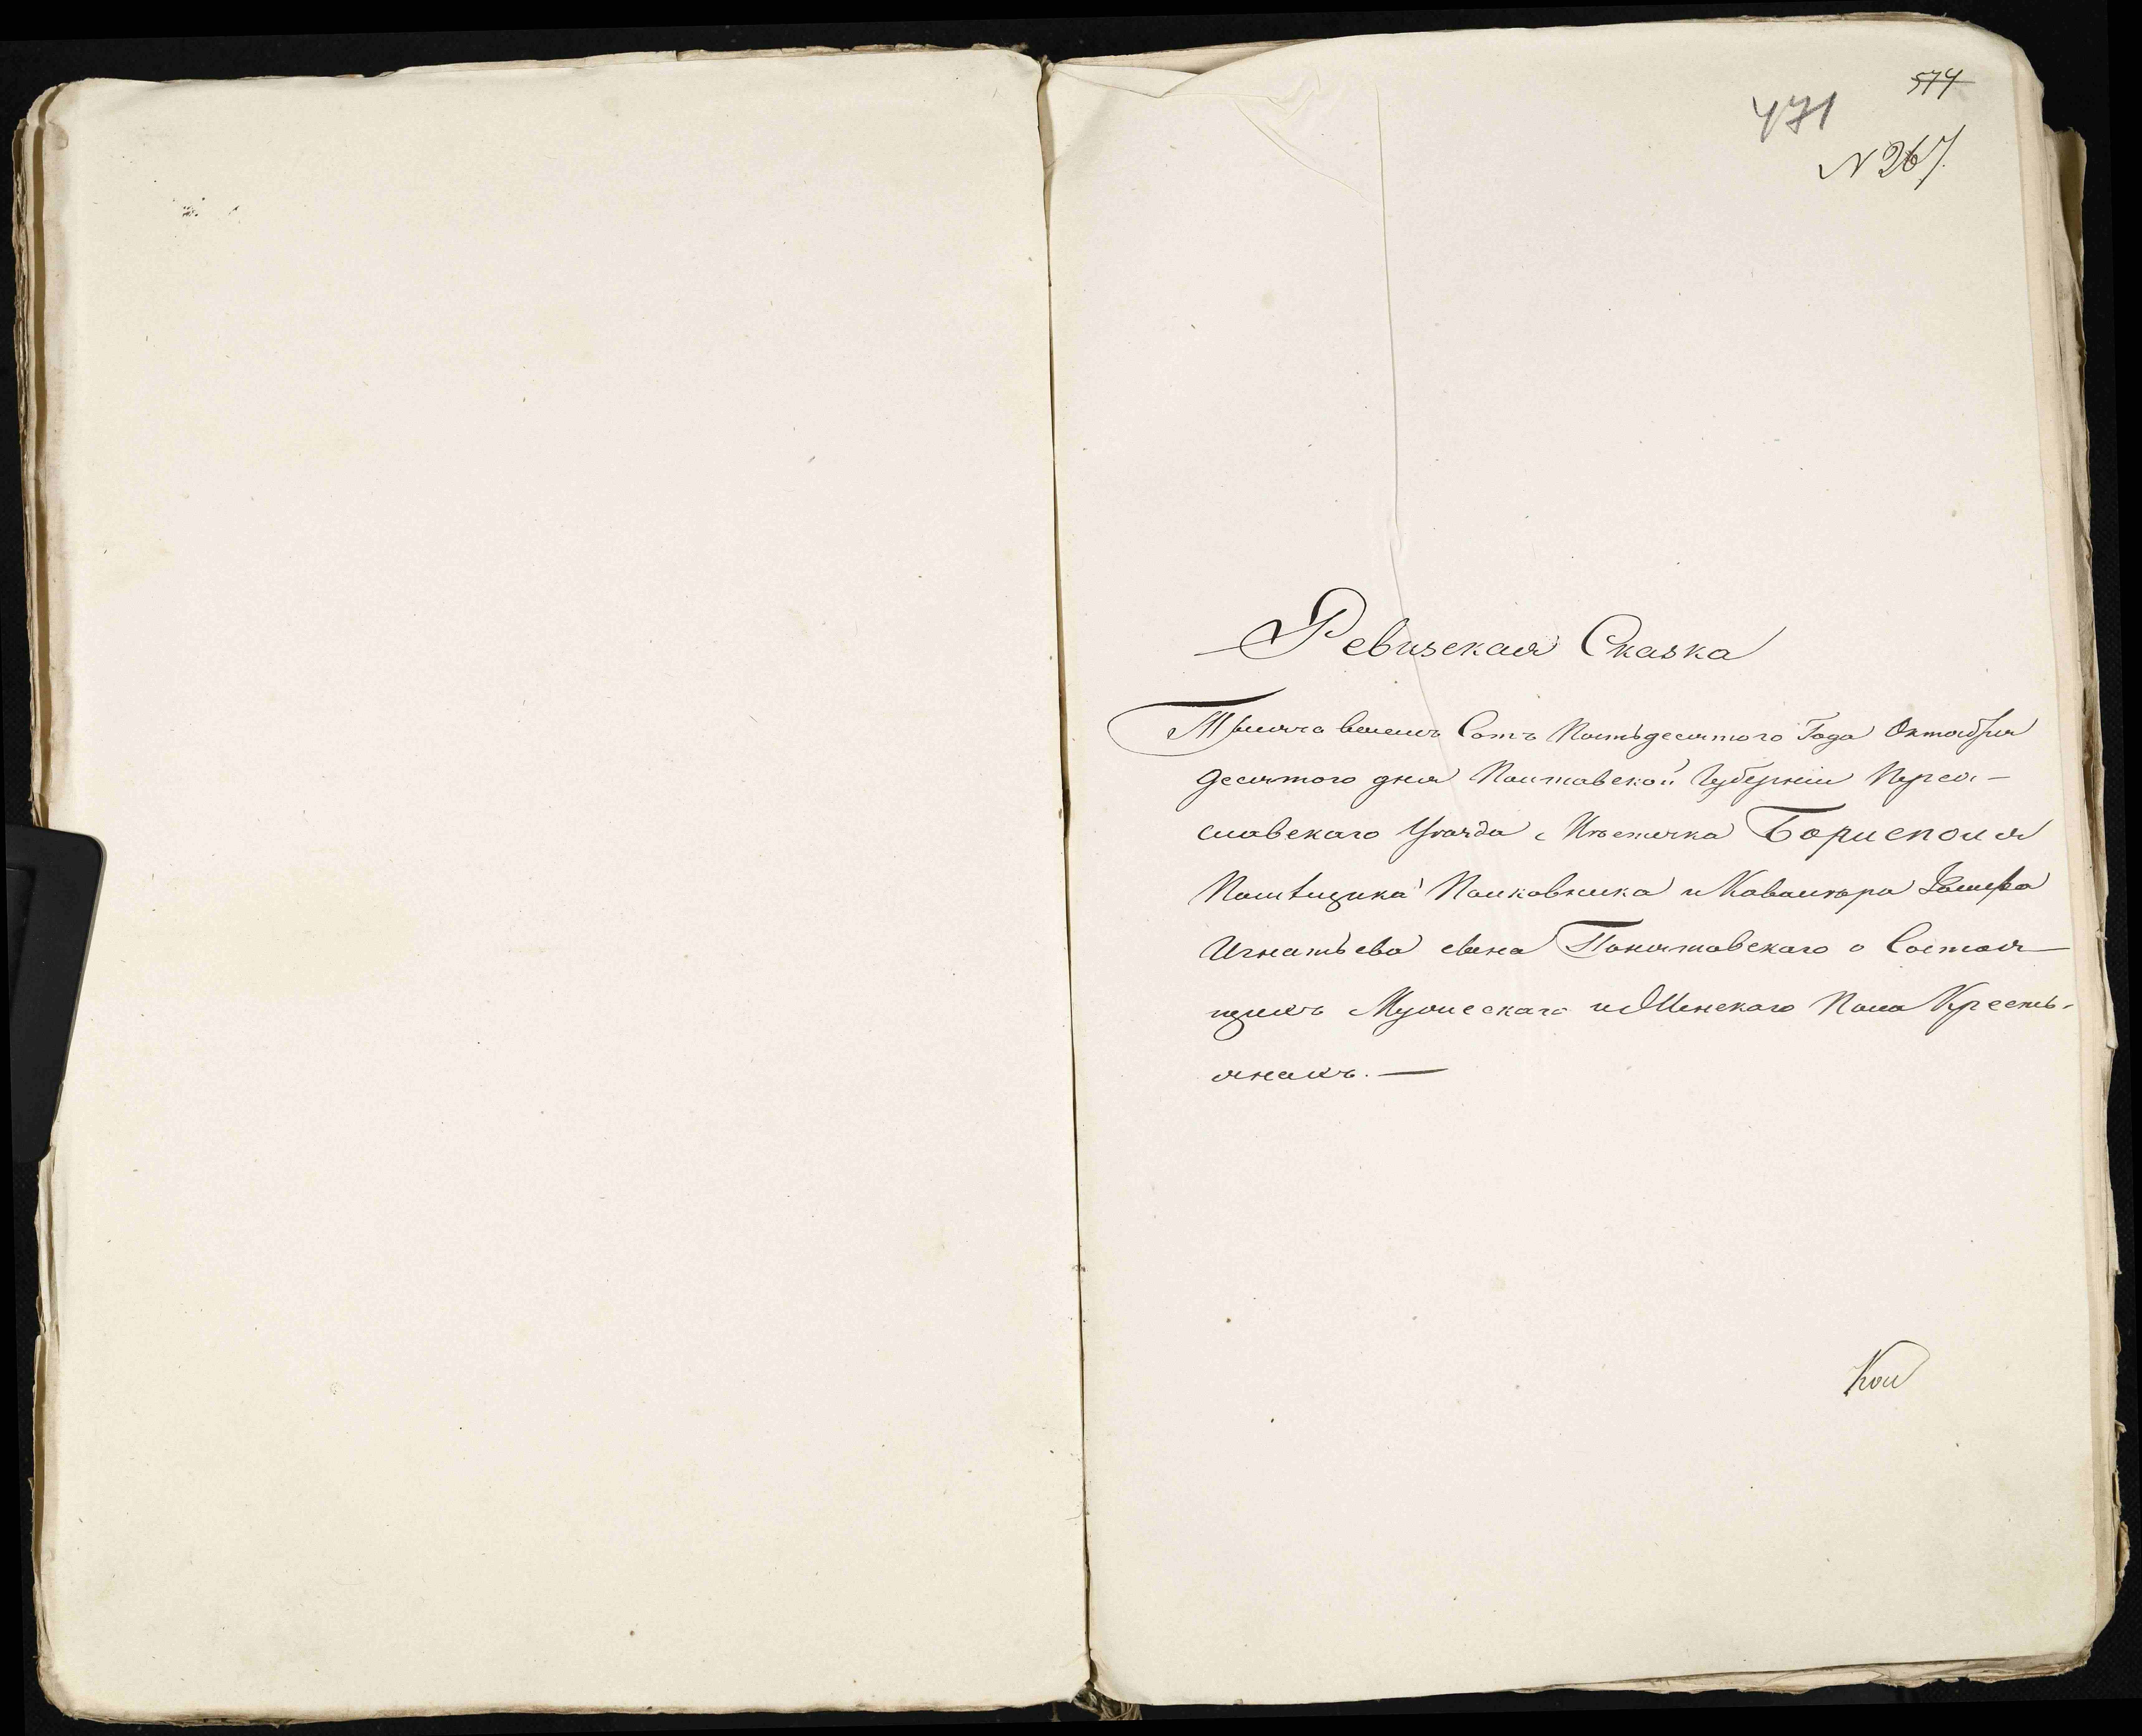 574
471
N 267.
Ревизская Сказка
Тысяча восемь Сотъ Пятьдесятого Года Октября
десятого дня Полтавской Губерніи Перея-
славскаго Уѣзда Мѣстечка Борисполя
Помѣщика Полковника и Кавалера
Игнатьева сына Понятовскаго о Состоя-
щихъ Мужескаго и Женскаго Пола Кресть-
янахъ. —